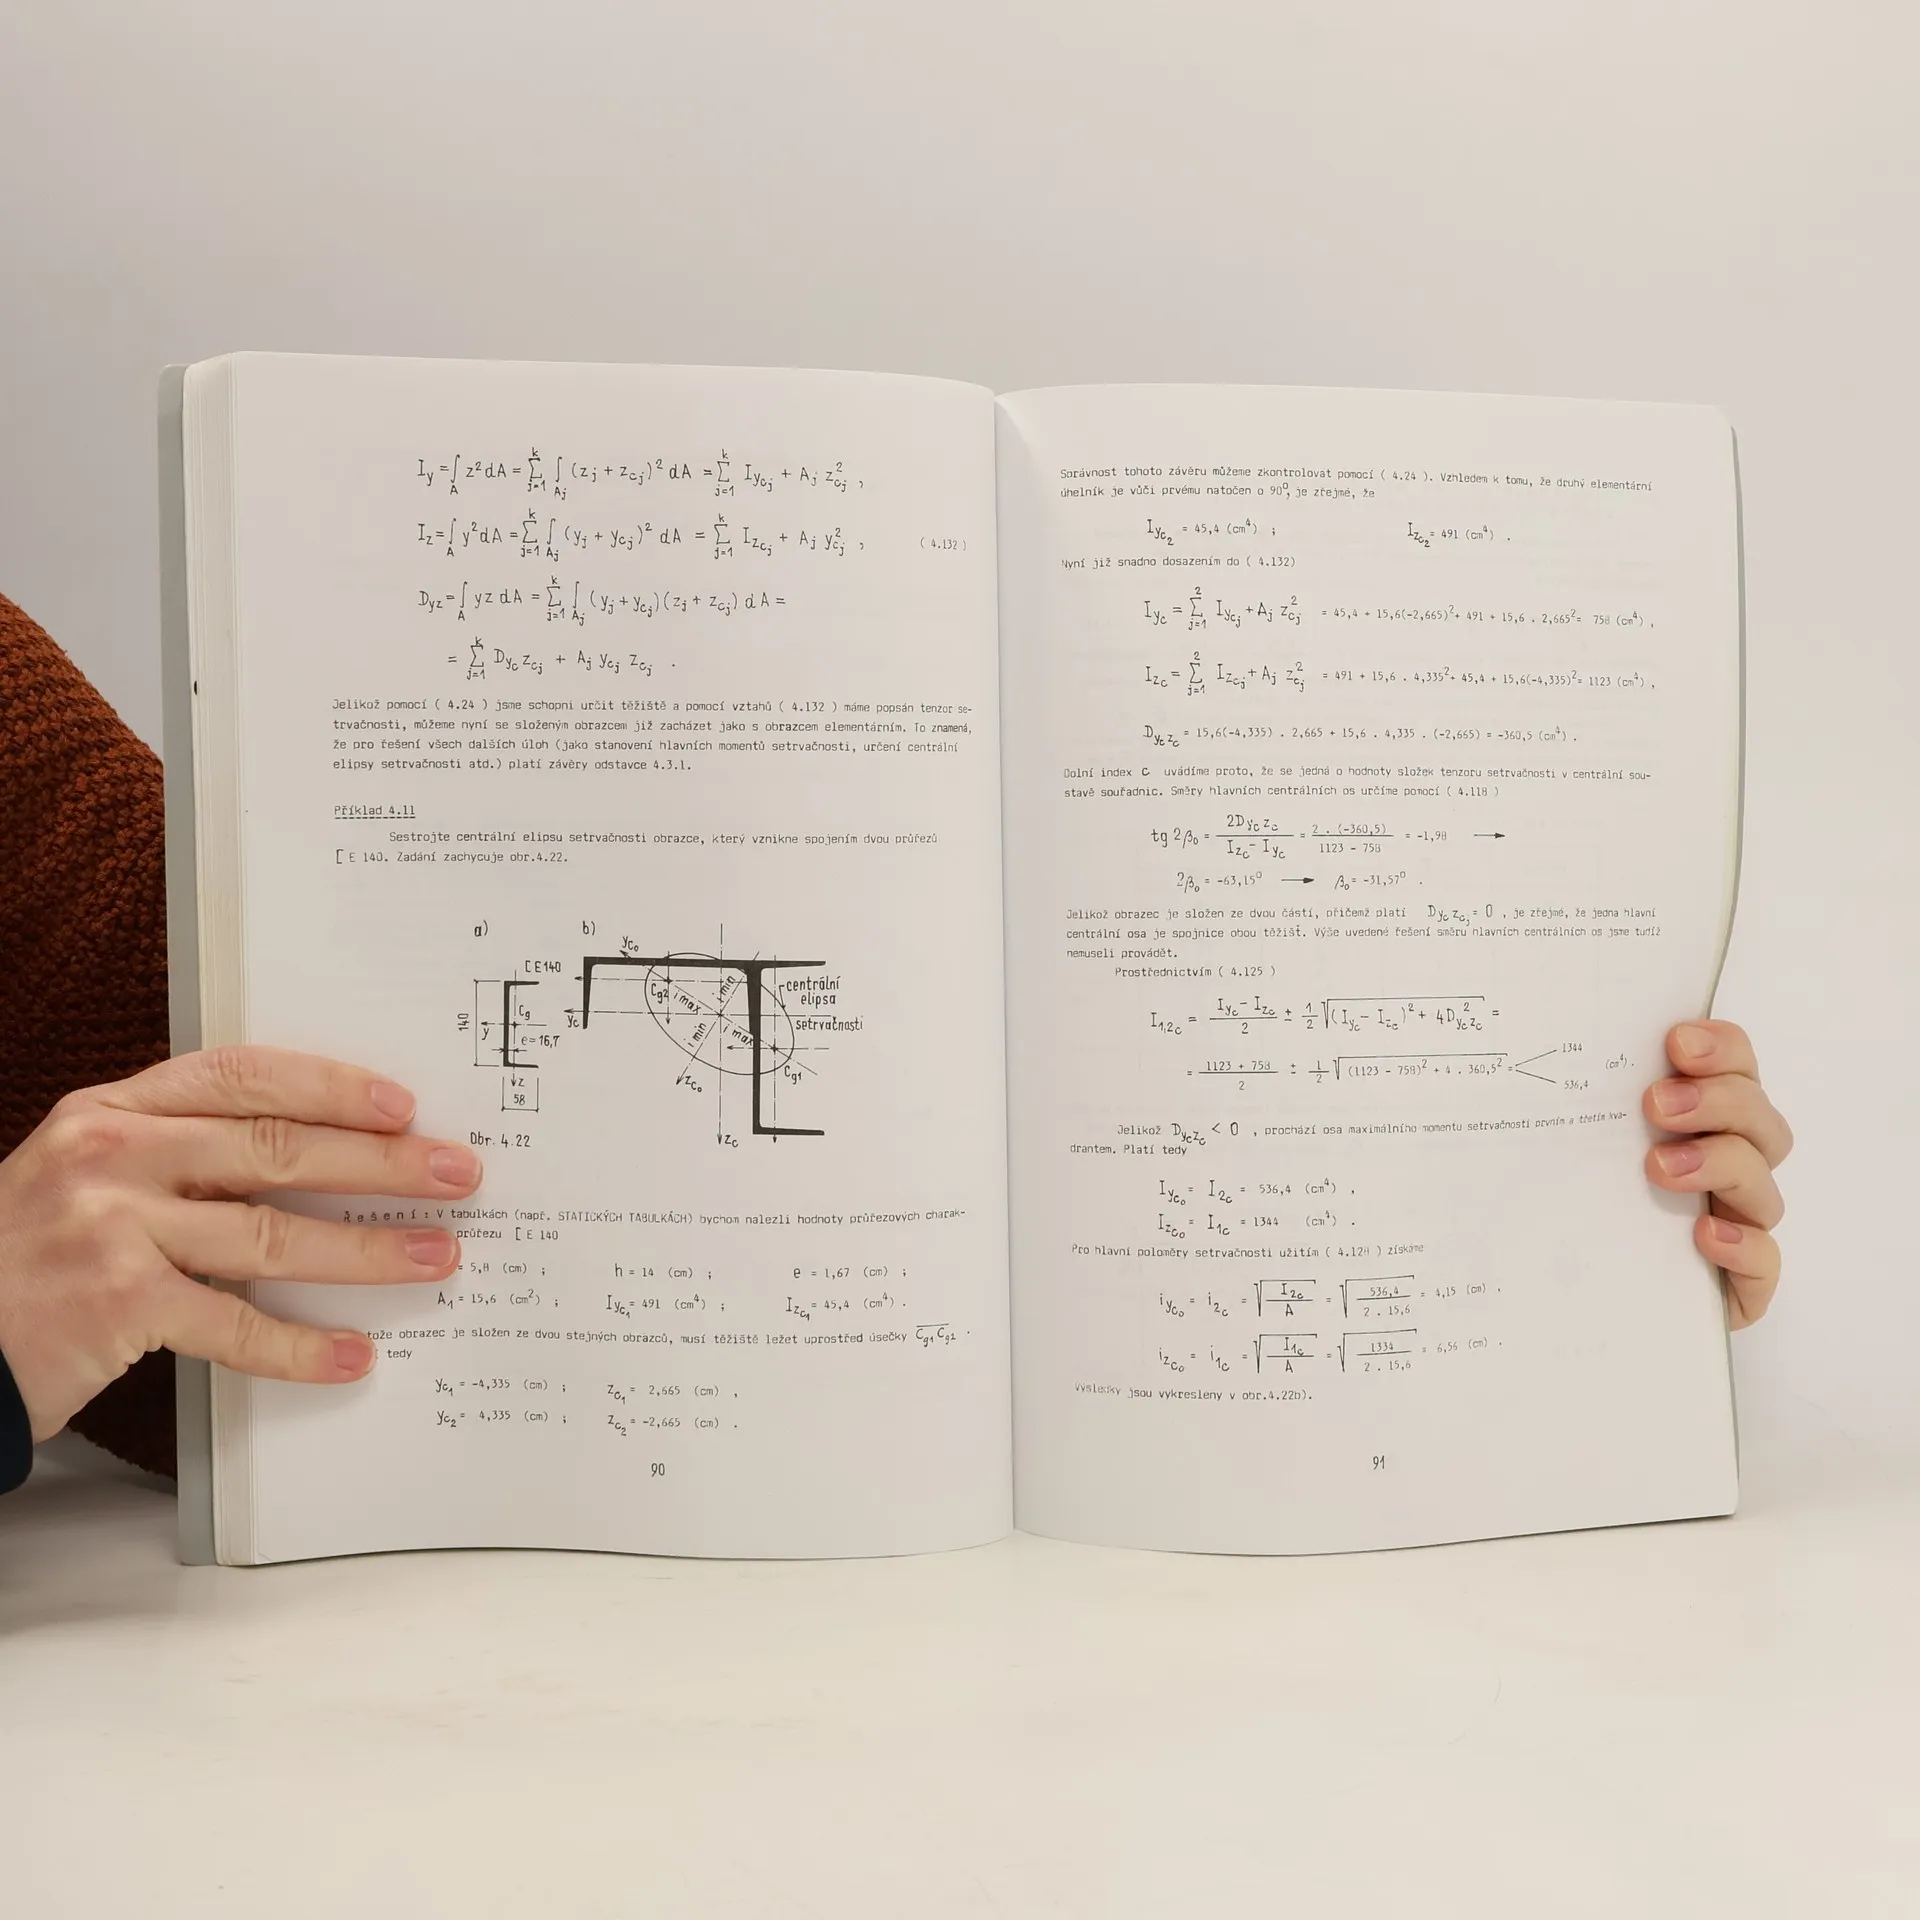 I_y = ∫_A z² dA = Σ_{j=1}^k ∫_{Aj} (z_j + z_{cj})² dA = Σ_{j=1}^k I_{ycj} + A_j z²_{cj} ,
I_z = ∫_A y² dA = Σ_{j=1}^k ∫_{Aj} (y_j + y_{cj})² dA = Σ_{j=1}^k I_{zcj} + A_j y²_{cj} , ( 4.132 )
D_{yz} = ∫_A yz dA = Σ_{j=1}^k ∫_{Aj} (y_j + y_{cj})(z_j + z_{cj}) dA =
= Σ_{j=1}^k D_{yc zcj} + A_j y_{cj} z_{cj} .
Jelikož pomocí ( 4.24 ) jsme schopni určit těžiště a pomocí vztahů ( 4.132 ) máme popsán tenzor se-
trvačnosti, můžeme nyní se složeným obrazcem již zacházet jako s obrazcem elementárním. To znamená,
že pro řešení všech dalších úloh (jako stanovení hlavních momentů setrvačnosti, určení centrální
elipsy setrvačnosti atd.) platí závěry odstavce 4.3.1.
Příklad 4.11
Sestrojte centrální elipsu setrvačnosti obrazce, který vznikne spojením dvou průřezů
[ E 140. Zadání zachycuje obr.4.22.
a)
[ E140
140
Cg
y
e=16,7
z
58
b)
y_{c0}
Cg2
i max
i min
centrální
elipsa
setrvačnosti
y_c
i min
i max
Cg1
z_{c0}
z_c
Obr. 4.22
Řešení: V tabulkách (např. STATICKÝCH TABULKÁCH) bychom nalezli hodnoty průřezových charak-
průřezu [ E 140
= 5,8 (cm) ; h = 14 (cm) ; e = 1,67 (cm) ;
A_1 = 15,6 (cm²) ; I_{yc1} = 491 (cm⁴) ; I_{zc1} = 45,4 (cm⁴) .
tože obrazec je složen ze dvou stejných obrazců, musí těžiště ležet uprostřed úsečky C_{g1} C_{g2} .
tedy
y_{c1} = -4,335 (cm) ; z_{c1} = 2,665 (cm) ,
y_{c2} = 4,335 (cm) ; z_{c2} = -2,665 (cm) .
90
Správnost tohoto závěru můžeme zkontrolovat pomocí ( 4.24 ). Vzhledem k tomu, že druhý elementární
úhelník je vůči prvému natočen o 90°, je zřejmé, že
I_{yc2} = 45,4 (cm⁴) ; I_{zc2} = 491 (cm⁴) .
Nyní již snadno dosazením do ( 4.132)
I_{yc} = Σ_{j=1}^2 I_{ycj} + A_j z²_{cj} = 45,4 + 15,6(-2,665)² + 491 + 15,6 . 2,665² = 758 (cm⁴) ,
I_{zc} = Σ_{j=1}^2 I_{zcj} + A_j z²_{cj} = 491 + 15,6 . 4,335² + 45,4 + 15,6(-4,335)² = 1123 (cm⁴) ,
D_{yc zc} = 15,6(-4,335) . 2,665 + 15,6 . 4,335 . (-2,665) = -360,5 (cm⁴) .
Dolní index C uvádíme proto, že se jedná o hodnoty složek tenzoru setrvačnosti v centrální sou-
stavě souřadnic. Směry hlavních centrálních os určíme pomocí ( 4.118 )
tg 2β_0 = 2D_{yc zc} / (I_{zc} - I_{yc}) = 2 . (-360,5) / (1123 - 758) = -1,98 →
2β_0 = -63,15° → β_0 = -31,57° .
Jelikož obrazec je složen ze dvou částí, přičemž platí D_{yc zcj} = 0 , je zřejmé, že jedna hlavní
centrální osa je spojnice obou těžišť. Výše uvedené řešení směru hlavních centrálních os jsme tudíž
nemuseli provádět.
Prostřednictvím ( 4.125 )
I_{1,2c} = (I_{yc} - I_{zc}) / 2 ± 1/2 √((I_{yc} - I_{zc})² + 4D²_{yc zc}) =
= (1123 + 758) / 2 ± 1/2 √((1123 - 758)² + 4 . 360,5²) = 1344 536,4 (cm⁴) .
Jelikož D_{yc zc} < 0 , prochází osa maximálního momentu setrvačnosti prvním a třetím kva-
drantem. Platí tedy
I_{yc0} = I_{2c} = 536,4 (cm⁴) ,
I_{zc0} = I_{1c} = 1344 (cm⁴) .
Pro hlavní poloměry setrvačnosti užitím ( 4.128 ) získáme
i_{yc0} = i_{2c} = √(I_{2c} / A) = √(536,4 / (2 . 15,6)) = 4,15 (cm) ,
i_{zc0} = i_{1c} = √(I_{1c} / A) = √(1334 / (2 . 15,6)) = 6,56 (cm) .
Výsledky jsou vykresleny v obr.4.22b).
91